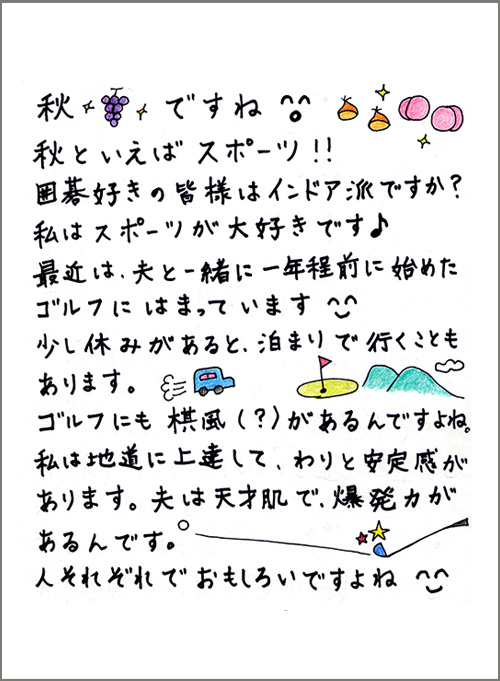 秋ですね
秋といえばスポーツ!!
囲碁好きの皆様はインドア派ですか?
私はスポーツが大好きです♪
最近は、夫と一緒に一年程前に始めた
ゴルフにはまっています
少し休みがあると、泊まりで行くことも
あります。
ゴルフにも棋風(?)があるんですよね。
私は地道に上達して、わりと安定感が
あります。夫は天才肌で、爆発力が
あるんです。
人それぞれでおもしろいですよね